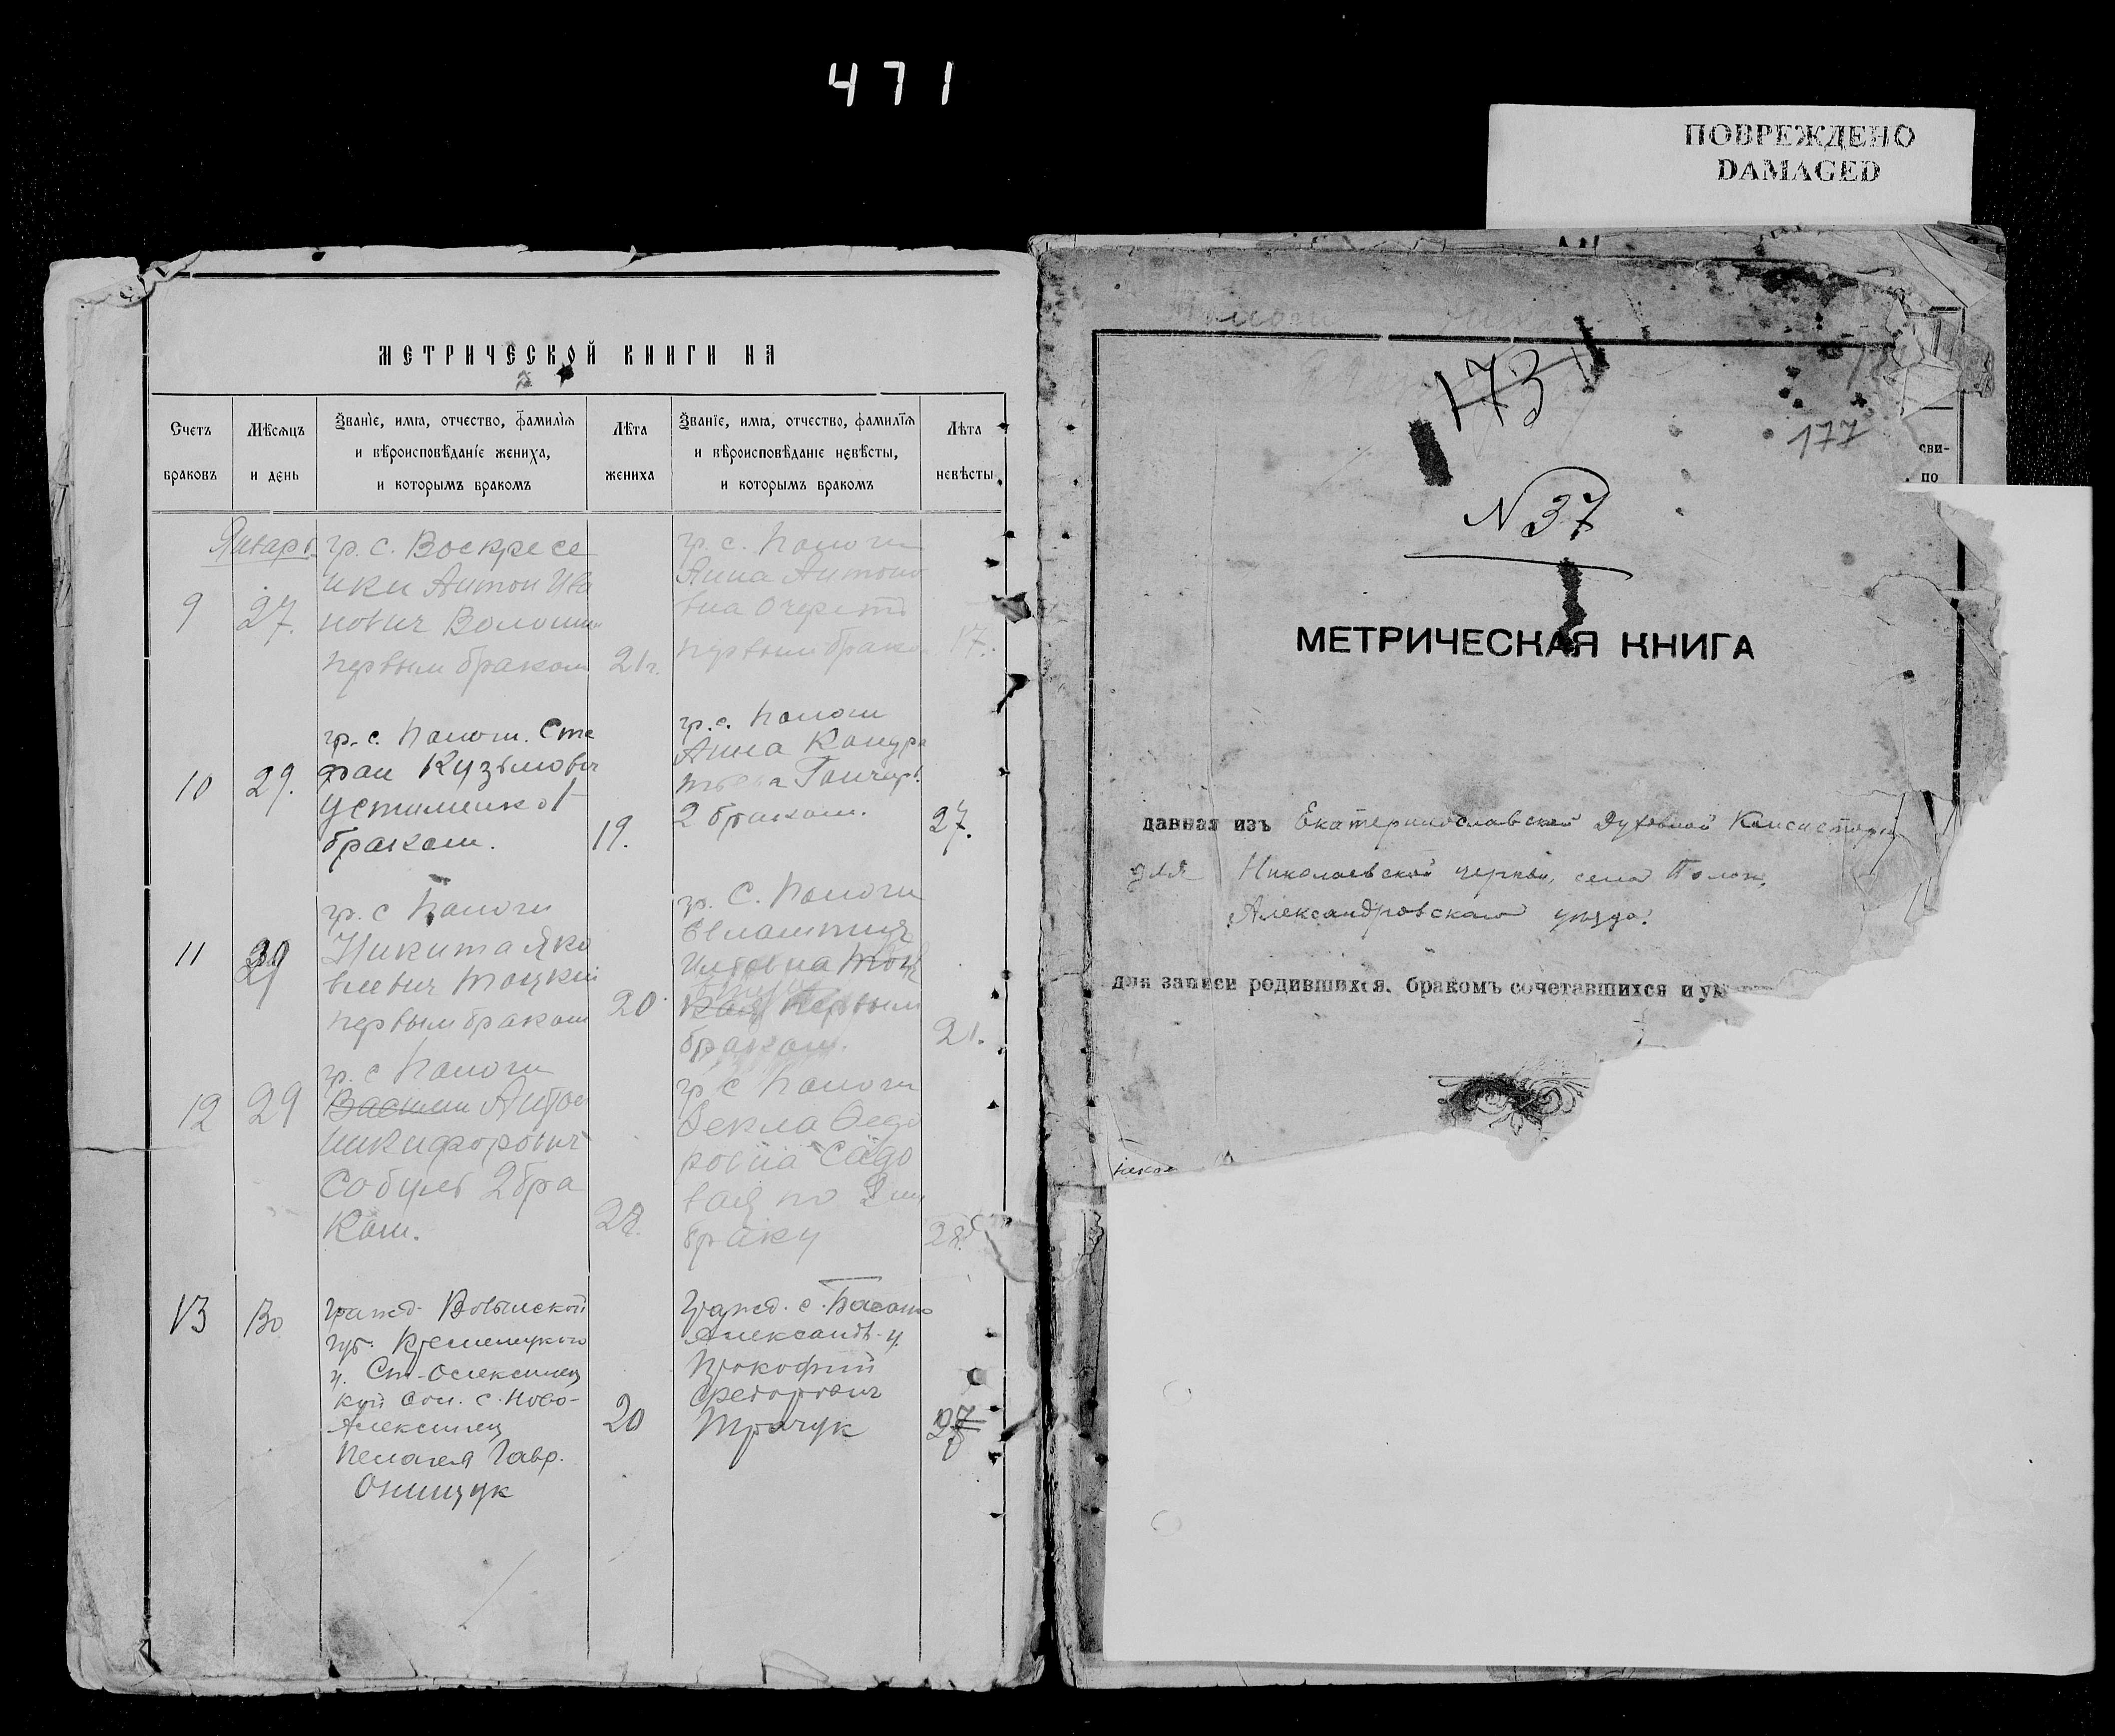 471
ПОВРЕЖДЕНО
DAMAGED
МЕТРИЧЕСКОЙ КНИГИ НА
Счетъ браковъ
Мѣсяцъ и день
Званіе, имя, отчество, фамилія
и вѣроисповѣданіе жениха,
и которымъ бракомъ
Лѣта жениха
Званіе, имя, отчество, фамилія
и вѣроисповѣданіе невѣсты,
и которымъ бракомъ
Лѣта невѣсты
Январь
9
27.
гр. с. Воскресе
нки Антон Ива
нович Волошин
первым браком
21 г.
гр. с. Пологи
Анна Антоно
вна
первым брако
17.
10
29.
гр. с. Полог. Сте
фан Кузьмович
Устименко 1
браком.
19.
гр. с. Пологи
Анна Кондра
тьевна Гончар
2 браком.
27.
11
гр. с Пологи
Никита Яко
влевич Тоцкий
первым браком
20
гр. с. Пологи
первым
браком.
21.
12
29
гр. с Пологи
Василий Антон
Никифорович
Соболь 2 бра
ком.
28.
гр. с Пологи
Фекла Федо
ровна Садо
вая по 2 му
браку
28.
13
30
Гражд. Волынской
губ. Кременецкого
у. Ст-Олексинец
кой вол. с. Ново-
Алексинец
Пелагея Гавр.
Онищук
20
Гражд. с. Басань
Александ. у.
Прокофий
Григорович
Трачук
27
173
177
сви-
по
N 37
МЕТРИЧЕСКАЯ КНИГА
данная изъ Екатеринославской Духовной Консистории
для Николаевской церкви, села Полог,
Александровскаго уезда.
для записи родившихся, бракомъ сочетавшихся и ум